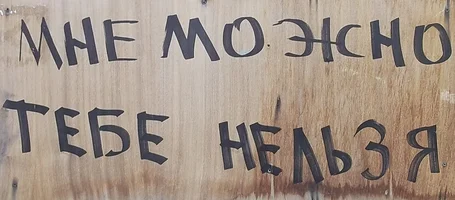 МНЕ МОЖНО
ТЕБЕ НЕЛЬЗЯ